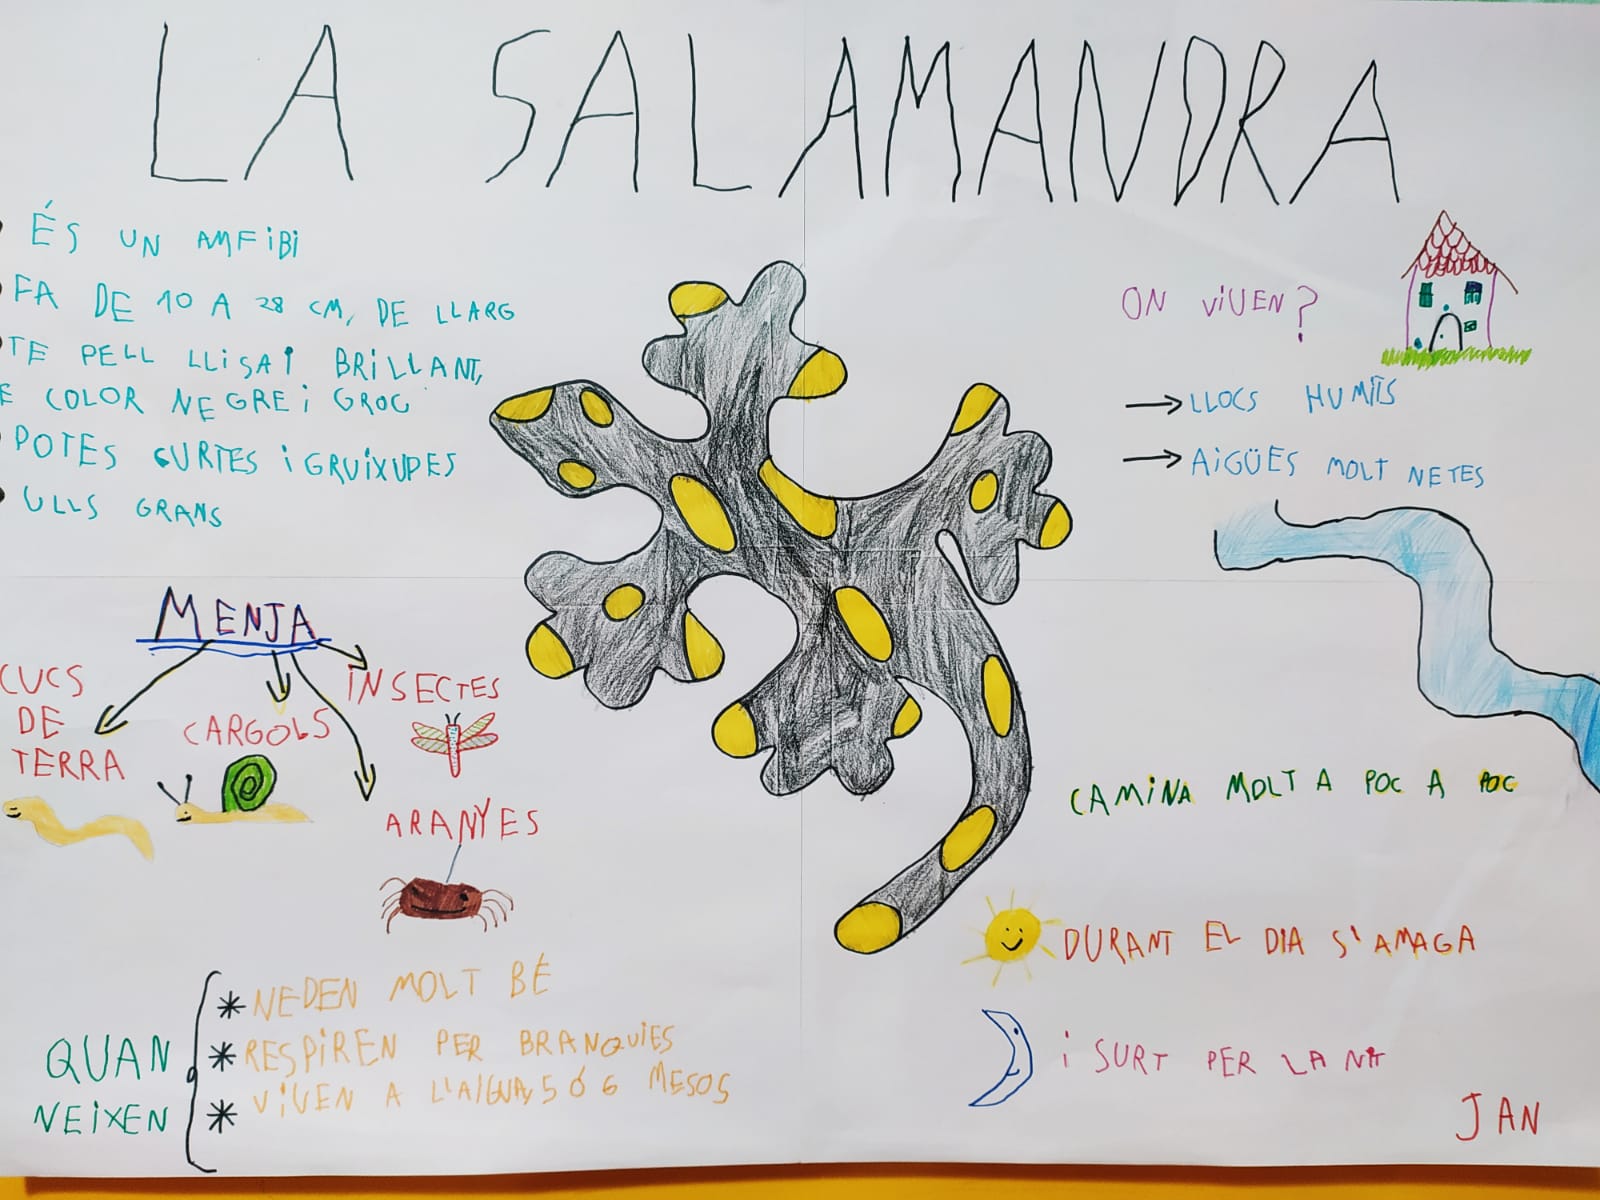 LA SALAMANDRA
ÉS UN AMFIBI
FA DE 10 A 28 CM, DE LLARG
TE PELL LLISA I BRILLANT,
E COLOR NEGRE I GROC
POTES CURTES I GRUIXUDES
ULLS GRANS
ON VIUEN?
→ LLOCS HUMITS
→ AIGÜES MOLT NETES
MENJA
CUCS
DE
TERRA
CARGOLS
INSECTES
ARANYES
CAMINA MOLT A POC A POC
DURANT EL DIA S'AMAGA
I SURT PER LA NIT
QUAN
NEIXEN
* NEDEN MOLT BÉ
* RESPIREN PER BRANQUIES
* VIUEN A L'AIGUA, 5 Ó 6 MESOS
JAN